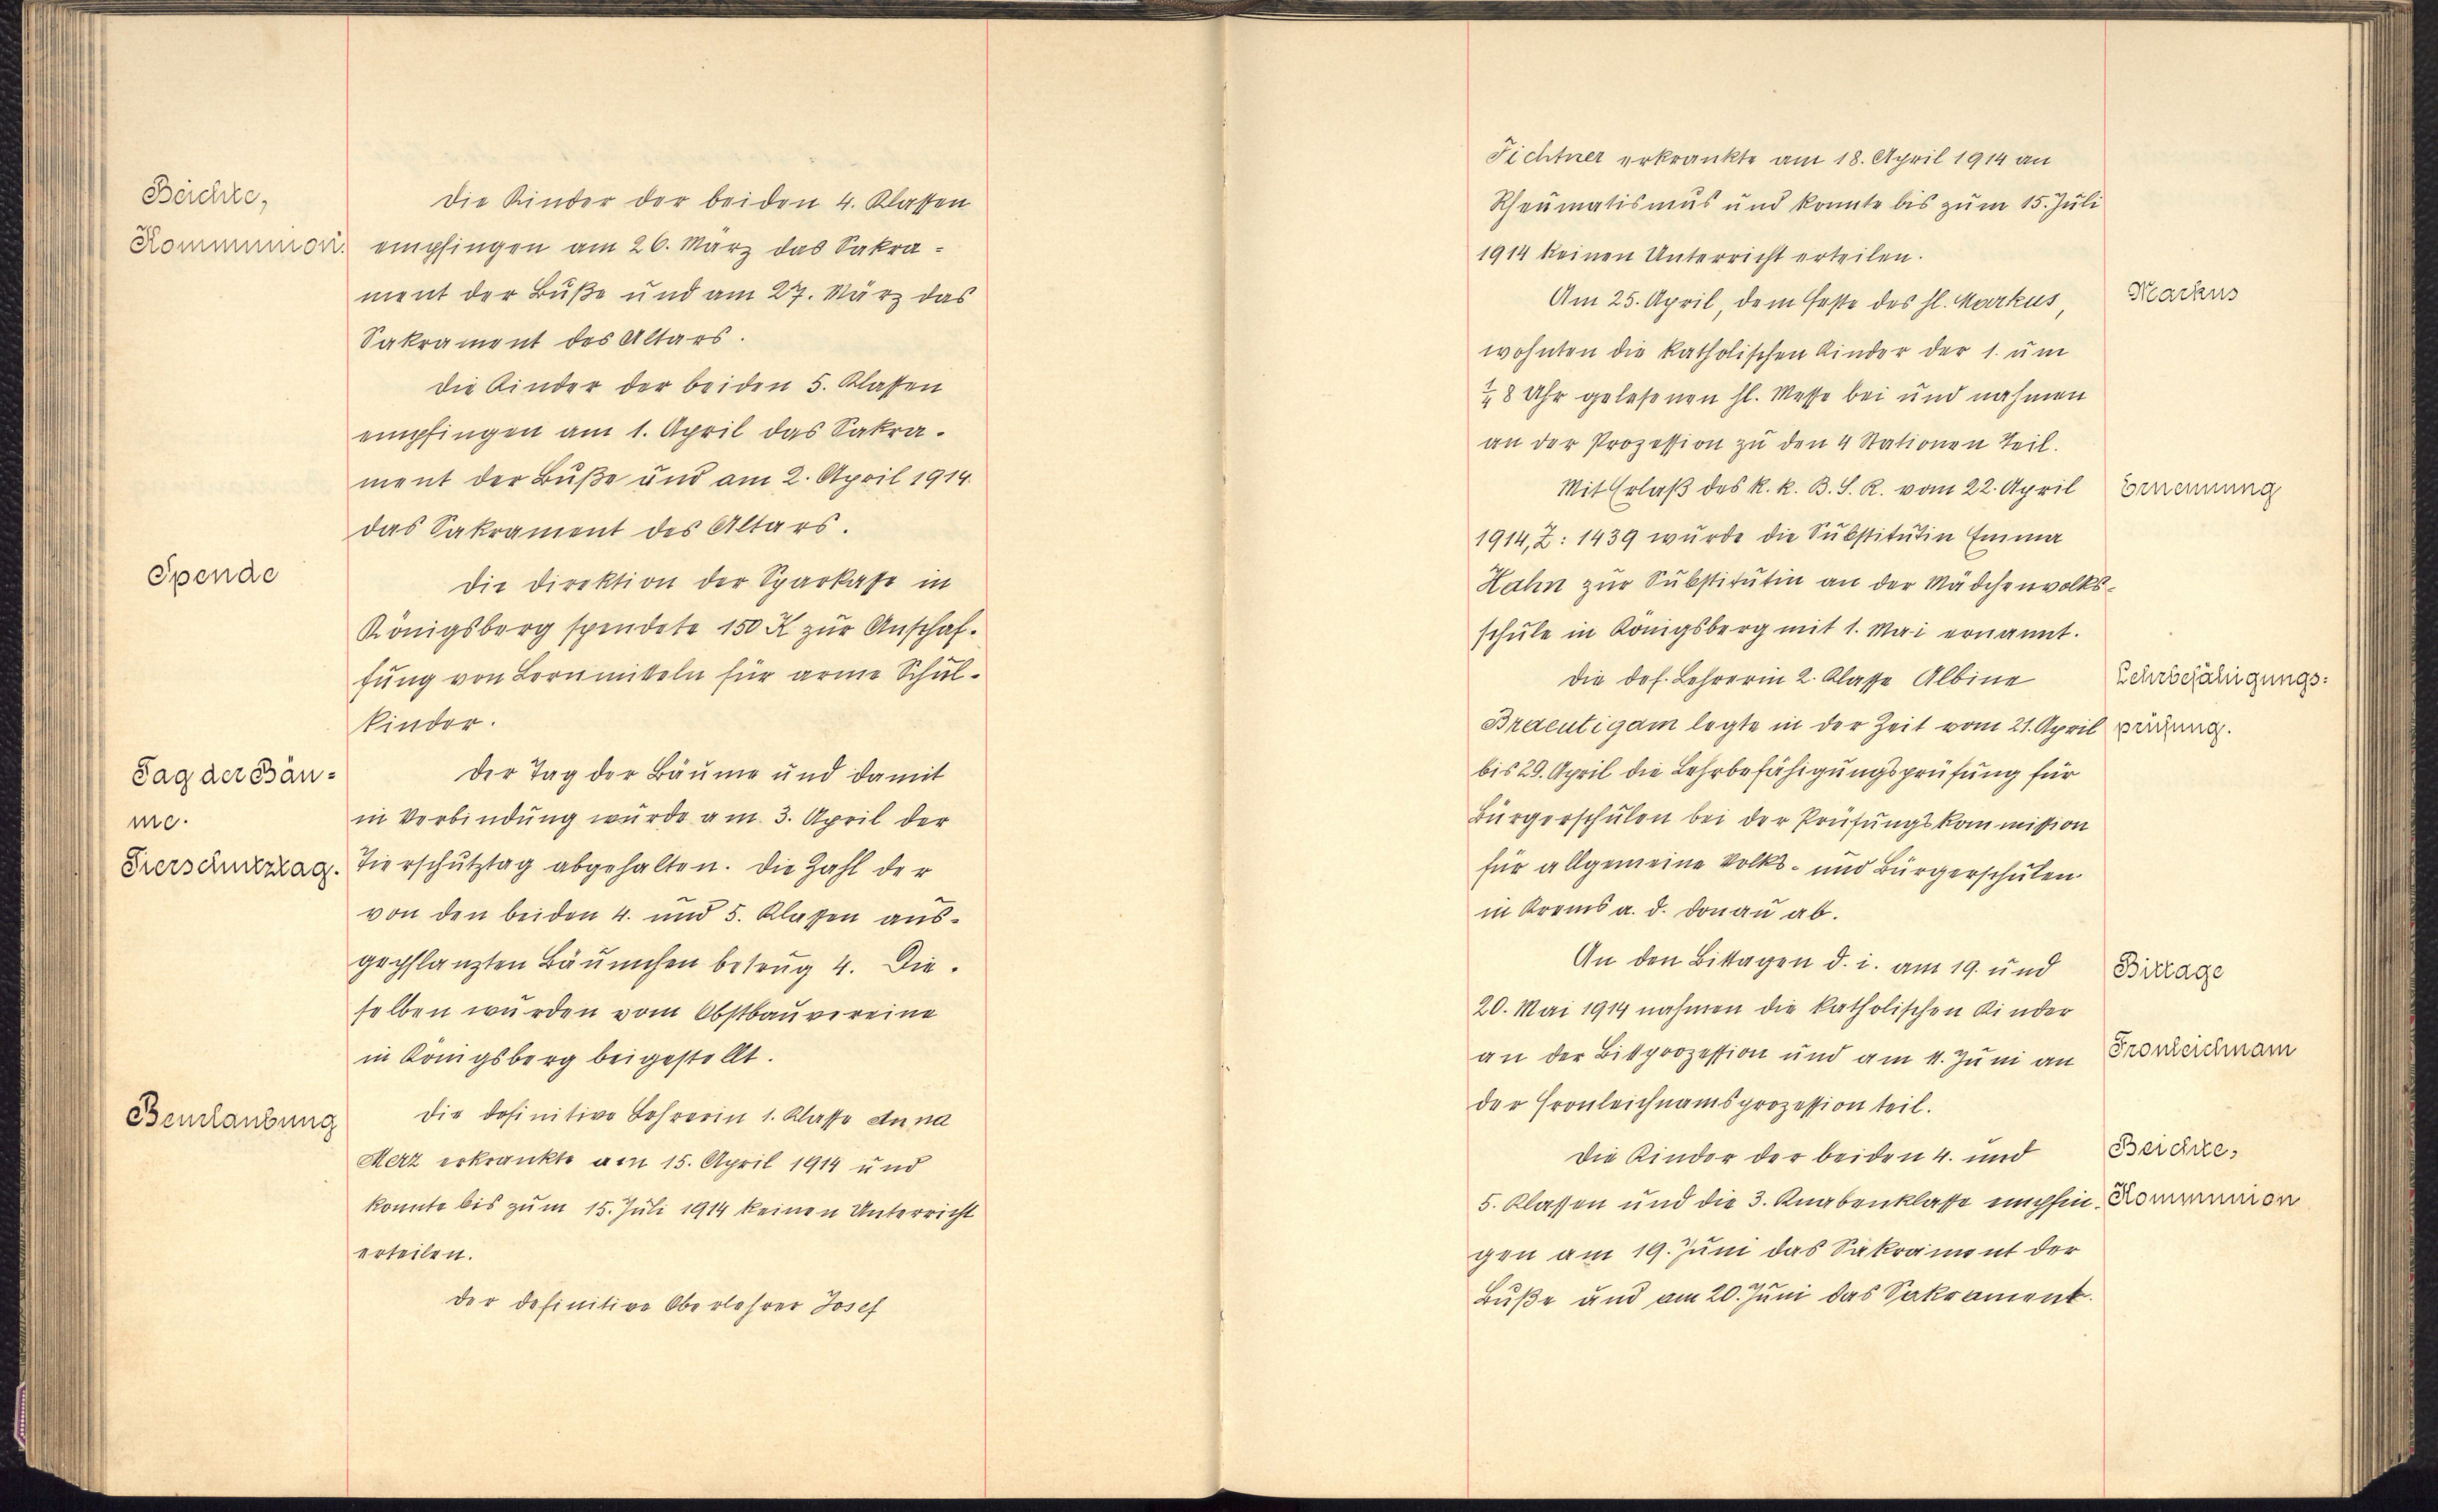 Beichte,
Kommunion.
Die Kinder der beiden 4. Klassen
empfingen am 26. März das Sakra-
ment der Buße und am 27. März das
Sakrament des Altars.
Die Kinder der beiden 5. Klassen
empfingen am 1. April das Sakra-
ment der Buße und am 2. April 1914
das Sakrament des Altars.
Spende
Die Direktion der Sparkasse in
Königsberg spendete 150 K zur Anschaf-
fung von Lernmitteln für arme Schul-
kinder.
Tag der Bäu-
me.
Tierschutztag.
Der Tag der Bäume und damit
in Verbindung wurde am 3. April der
Tierschutztag abgehalten. Die Zahl der
von den beiden 4. und 5. Klassen aus-
gepflanzten Bäumchen betrug 4. Die-
selben wurden vom Obstbauvereine
in Königsberg beigestellt.
Beurlaubung
Die definitive Lehrerin 1. Klasse Anna
Merz erkrankte am 15. April 1914 und
konnte bis zum 15. Juli 1914 keinen Unterricht
erteilen.
Der definitive Oberlehrer Josef
Fichtner erkrankte am 18. April 1914 an
Rheumatismus und konnte bis zum 15. Juli
1914 keinen Unterricht erteilen.
Markus
Am 25. April, dem Feste des hl. Markus,
wohnten die katholischen Kinder der 1. um
1/4 8 Uhr gelesenen hl. Messe bei und nahmen
an der Prozession zu den 4 Stationen Teil.
Ernennung
Mit Erlaß des k. k. B. S. R. vom 22. April
1914, Z: 1439 wurde die Substitutin Emma
Hahn zur Substitutin an der Mädchenvolks-
schule in Königsberg mit 1. Mai ernannt.
Lehrbefähigungs-
prüfung.
Die def. Lehrerin 2. Klasse Albine
Braeutigam legte in der Zeit vom 21. April
bis 29. April die Lehrbefähigungsprüfung für
Bürgerschulen bei der Prüfungskommission
für allgemeine Volks- und Bürgerschulen
in Krems a. d. Donau ab.
Bittage
An den Bittagen d. i. am 19. und
20. Mai 1914 nahmen die katholischen Kinder
Fronleichnam
an der Bittprozession und am 11. Juni an
der Fronleichnamsprozession teil.
Beichte,
Kommunion
Die Kinder der beiden 4. und
5. Klassen und die 3. Knabenklasse empfin-
gen am 19. Juni das Sakrament der
Buße und am 20. Juni das Sakrament